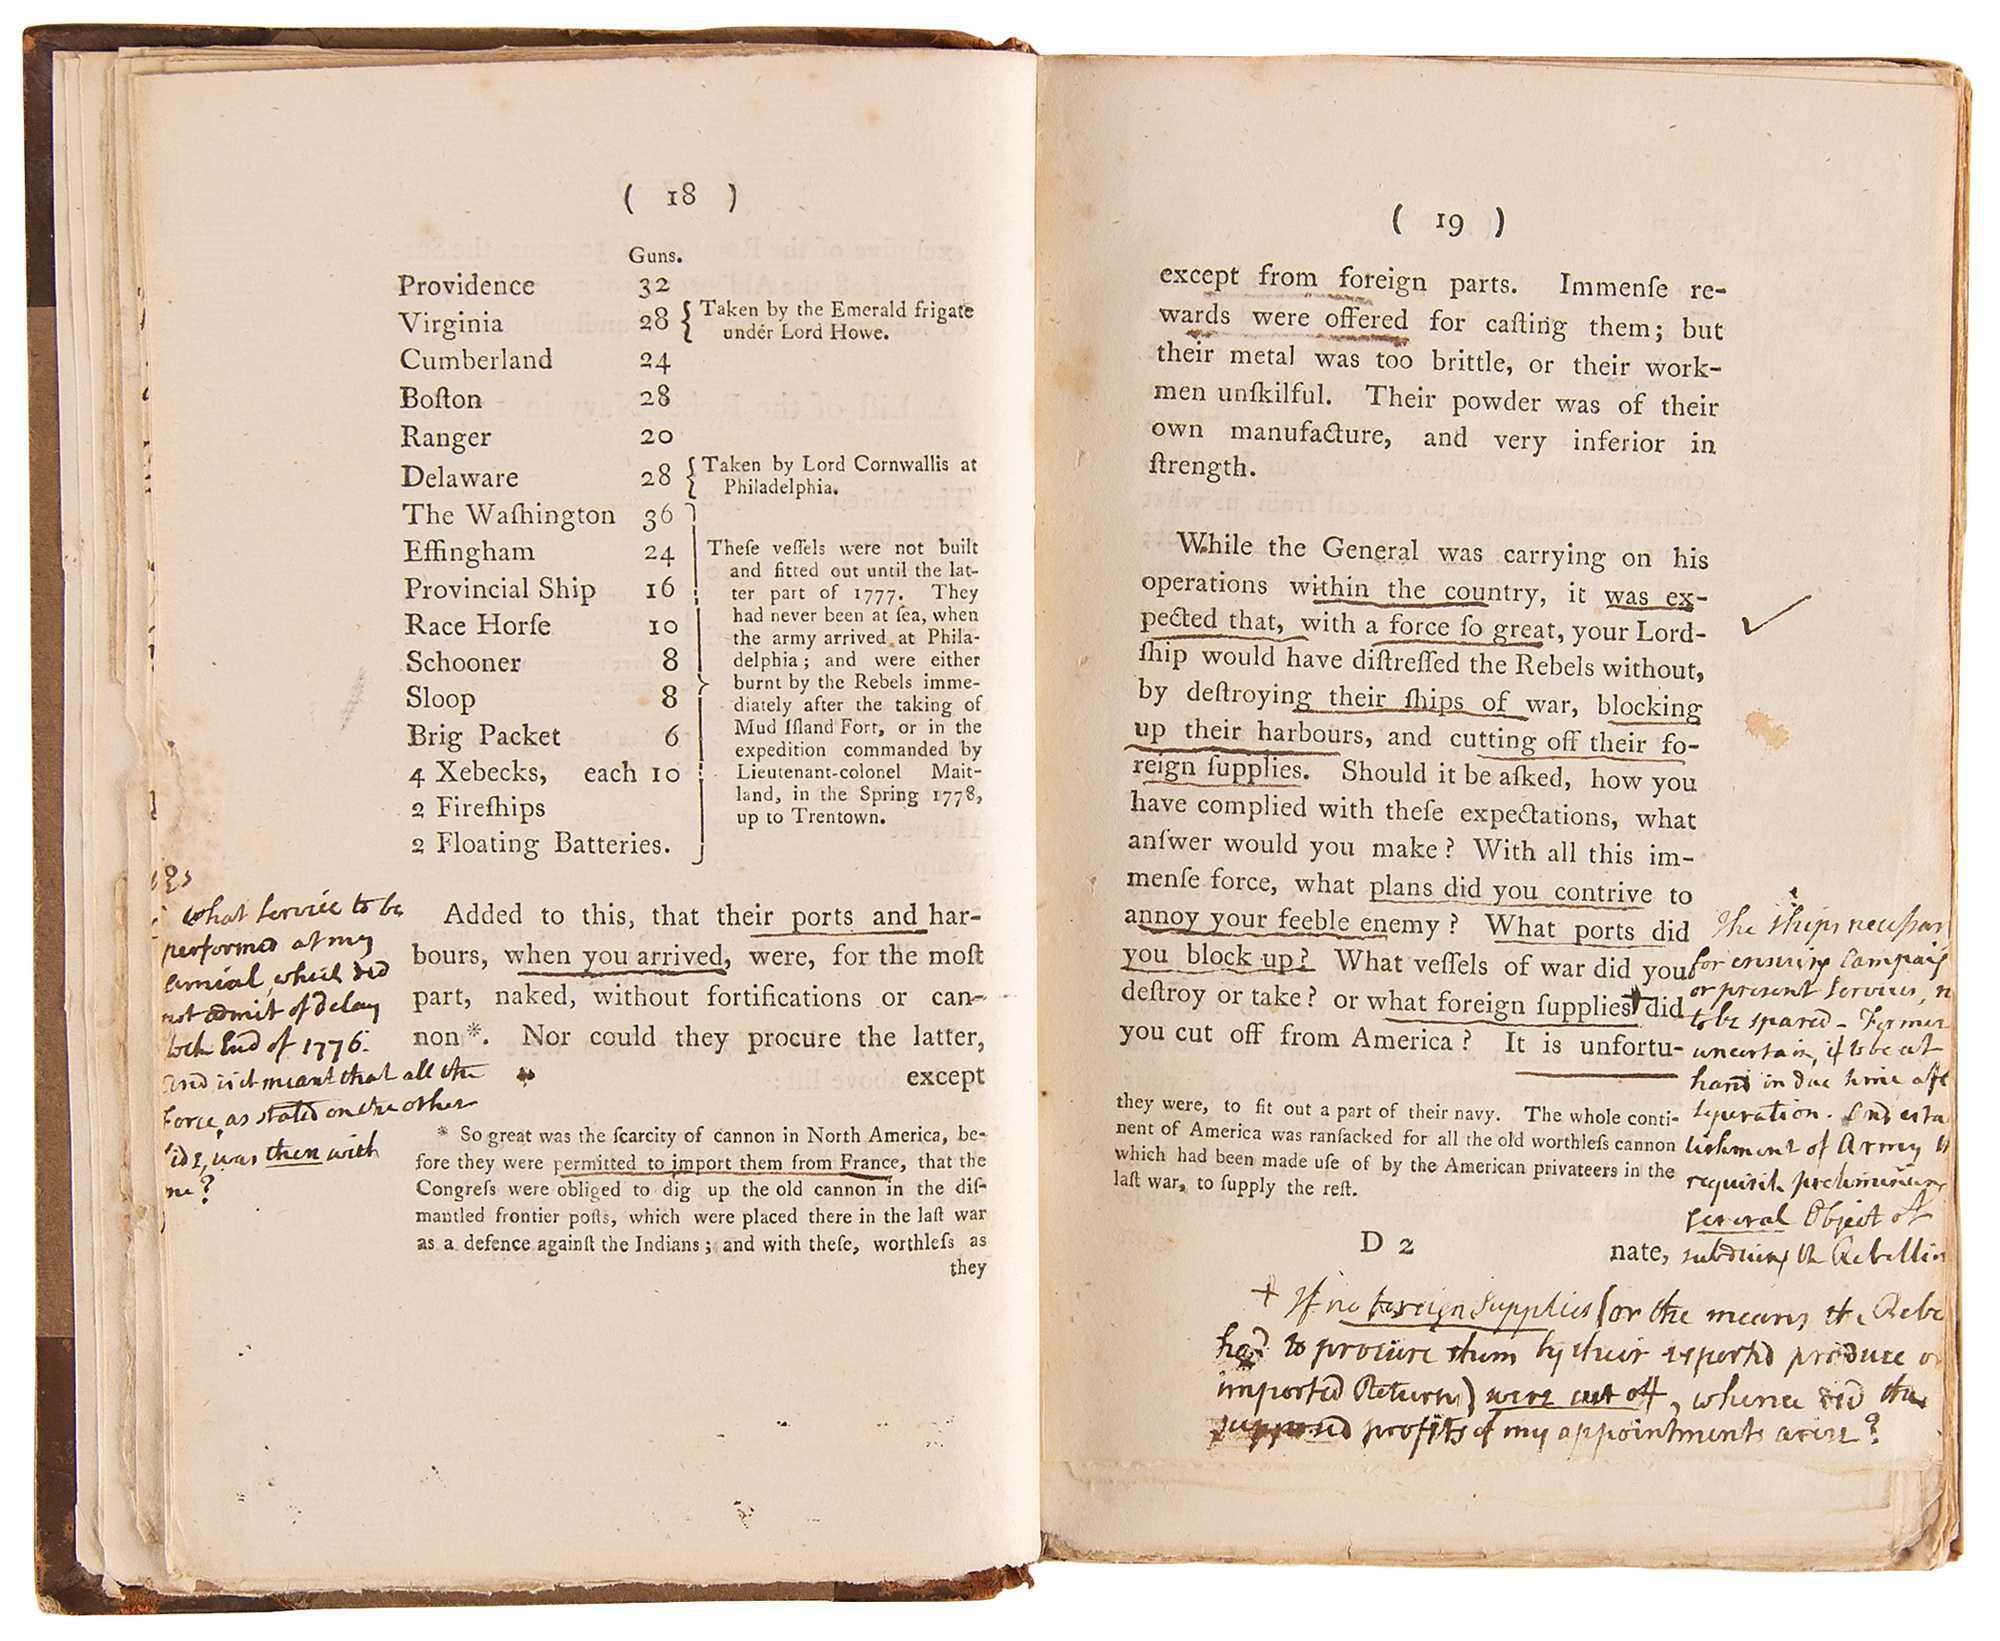 ( 18 )
Guns.
Providence 32
Virginia 28 { Taken by the Emerald frigate
under Lord Howe.
Cumberland 24
Boſton 28
Ranger 20
Delaware 28 { Taken by Lord Cornwallis at
Philadelphia.
The Waſhington 36
Effingham 24
Provincial Ship 16
Race Horſe 10
Schooner 8
Sloop 8
Brig Packet 6
4 Xebecks, each 10
2 Fireſhips
2 Floating Batteries.
Theſe veſſels were not built
and fitted out until the lat-
ter part of 1777. They
had never been at ſea, when
the army arrived at Phila-
delphia; and were either
burnt by the Rebels imme-
diately after the taking of
Mud Iſland Fort, or in the
expedition commanded by
Lieutenant-colonel Mait-
land, in the Spring 1778,
up to Trentown.
Added to this, that their ports and har-
bours, when you arrived, were, for the moſt
part, naked, without fortifications or can-
non*. Nor could they procure the latter,
except
* So great was the ſcarcity of cannon in North America, be-
fore they were permitted to import them from France, that the
Congreſs were obliged to dig up the old cannon in the diſ-
mantled frontier poſts, which were placed there in the laſt war
as a defence againſt the Indians; and with theſe, worthleſs as
they
what service to be
performed at my
arrival, which did
not admit of delay
End of 1776.
and is it meant that all the
Force, as stated on the other
side, was then with
me?
( 19 )
except from foreign parts. Immenſe re-
wards were offered for caſting them; but
their metal was too brittle, or their work-
men unſkilful. Their powder was of their
own manufacture, and very inferior in
ſtrength.
While the General was carrying on his
operations within the country, it was ex-
pected that, with a force ſo great, your Lord-
ſhip would have diſtreſſed the Rebels without,
by deſtroying their ſhips of war, blocking
up their harbours, and cutting off their fo-
reign ſupplies. Should it be aſked, how you
have complied with theſe expectations, what
anſwer would you make? With all this im-
menſe force, what plans did you contrive to
annoy your feeble enemy? What ports did
you block up? What veſſels of war did you
deſtroy or take? or what foreign ſupplies+ did
you cut off from America? It is unfortu-
they were, to fit out a part of their navy. The whole conti-
nent of America was ranſacked for all the old worthleſs cannon
which had been made uſe of by the American privateers in the
laſt war, to ſupply the reſt.
D 2 nate,
The ships necessar
for ensuing Campaig
or present Services, n
to be spared – Former
uncertain, if to be at
hand in due time aft
seperation. And esta
lishment of Army
requisite preliminary
general Object of
subduing the Rebellion
+ If no foreign Supplies (or the means the Rebe
had to procure them by their exported produce or
imported Returns) were cut off, whence did the
supposed profits of my appointments arise?